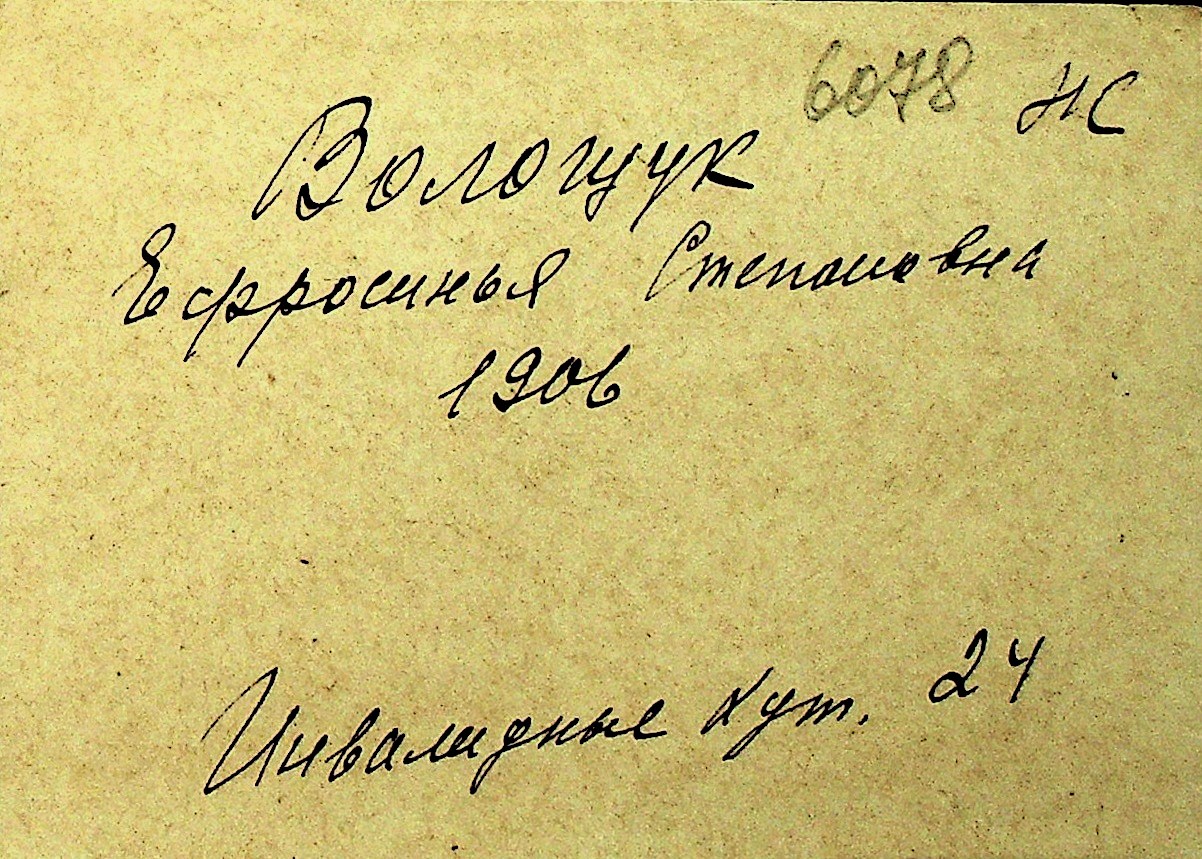 6078 НС
Волощук
Ефросинья Степановна
1906
Инвалидные хут. 24